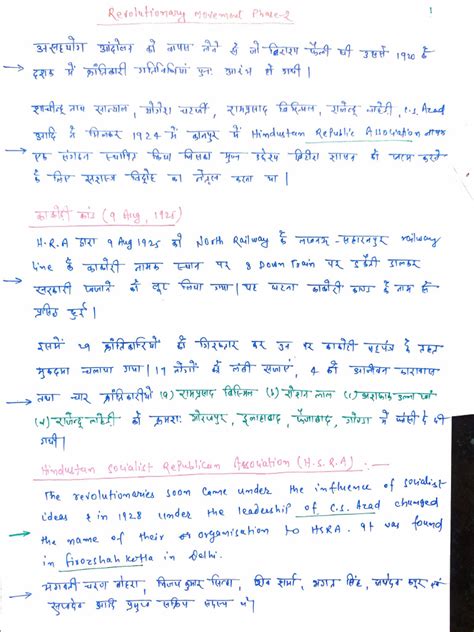 Revolutionary Movement Phase-2
1
असहयोग आंदोलन को वापस लेने से जो निराशा फैली थी उससे 1920 के
दशक में क्रांतिकारी गतिविधियां पुनः आरंभ हो गयी।
शचीन्द्र नाथ सान्याल, जोगेश चटर्जी, रामप्रसाद बिस्मिल, राजेन्द्र लाहिड़ी, C.S. Azad
आदि ने मिलकर 1924 में कानपुर में Hindustan Republic Association नामक
एक संगठन स्थापित किया जिसका मुख्य उद्देश्य ब्रिटिश शासन को खत्म करने
के लिए सशस्त्र विद्रोह का नेतृत्व करना था।
काकोरी कांड (9 Aug, 1925)
H.R.A द्वारा 9 Aug 1925 को North Railway के लखनऊ-सहारनपुर railway
line के काकोरी नामक स्थान पर 8 Down Train पर डकैती डालकर
सरकारी खजाने को लूट लिया गया। यह घटना काकोरी काण्ड के नाम से
प्रसिद्ध हुई।
इसमें 29 क्रांतिकारियों को गिरफ्तार कर उन पर काकोरी षड्यंत्र के तहत
मुकदमा चलाया गया। 17 लोगों को लंबी सजाएं, 4 को आजीवन कारावास
तथा चार क्रांतिकारियों (a) रामप्रसाद बिस्मिल (b) रोशन लाल (c) अशफाक उल्ला खां
(d) राजेन्द्र लाहिड़ी को क्रमशः गोरखपुर, इलाहाबाद, फैजाबाद, गोण्डा में फांसी दे दी
गयी।
Hindustan Socialist Republican Association (H.S.R.A) :-
The revolutionaries soon came under the influence of socialist
ideas & in 1928 under the leadership of C.S. Azad changed
the name of their organisation to HSRA. It was found
in firozshah kotla in Delhi.
भगवती चरण वोहरा, विजय कुमार सिन्हा, शिव शर्मा, भगत सिंह, जयदेव कपूर एवं
सुखदेव आदि प्रमुख सक्रिय सदस्य थे।